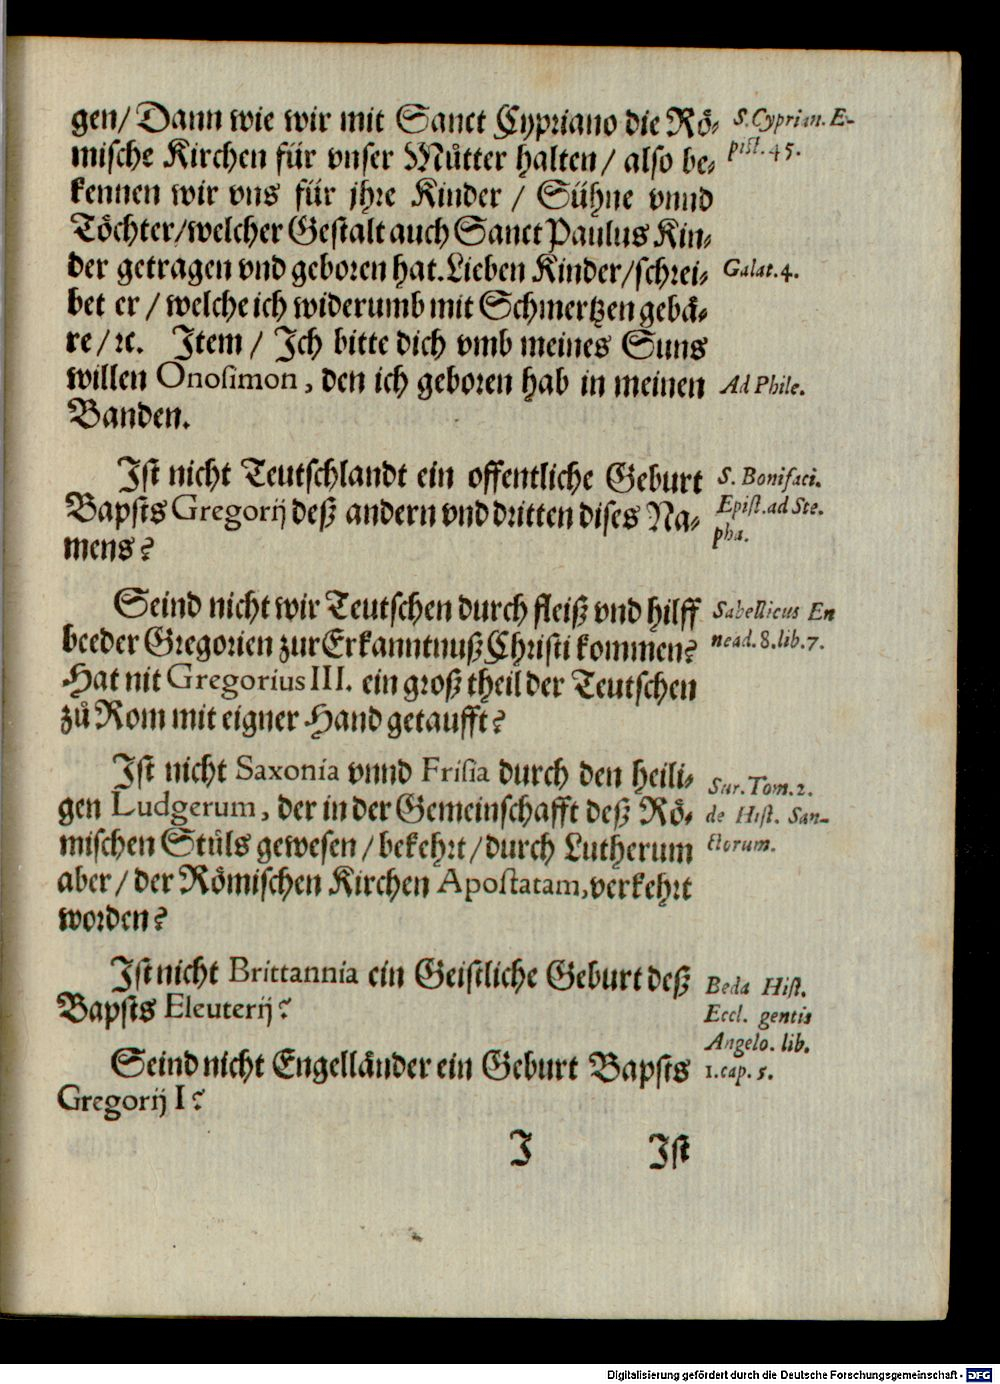 gen/ Dann wie wir mit Sanct Cypriano die Rö-
mische Kirchen für vnser Mütter halten / also be-
kennen wir vns für jhre Kinder / Sühne vnnd
Töchter/welcher Gestalt auch Sanct Paulus Kin-
der getragen vnd geboren hat. Lieben Kinder/schrei-
bet er / welche ich widerumb mit Schmertzen gebä-
re / ꝛc. Item / Ich bitte dich vmb meines Suns
willen Onosimon, den ich geboren hab in meinen
Banden.
S. Cyprian. E-
pist. 45.
Galat. 4.
Ad Phile.
Ist nicht Teutschlandt ein offentliche Geburt
Bapsts Gregorij deß andern vnd dritten dises Na-
mens?
S. Bonifaci.
Epist. ad Ste.
pha.
Seind nicht wir Teutschen durch fleiß vnd hilff
beeder Gregorien zur Erkanntnuß Christi kommen?
Hat nit Gregorius III. ein groß theil der Teutschen
zů Rom mit eigner Hand getaufft?
Sabellicus En
nead. 8. lib. 7.
Ist nicht Saxonia vnnd Frisia durch den heili-
gen Ludgerum, der in der Gemeinschafft deß Rö-
mischen Stůls gewesen / bekehrt / durch Lutherum
aber / der Römischen Kirchen Apostatam, verkehrt
worden?
Sur. Tom. 2.
de Hist. San-
ctorum.
Ist nicht Brittannia ein Geistliche Geburt deß
Bapsts Eleuterij?
Beda Hist.
Eccl. gentis
Angelo. lib.
1. cap. 5.
Seind nicht Engelländer ein Geburt Bapsts
Gregorij I?
I Ist
Digitalisierung gefördert durch die Deutsche Forschungsgemeinschaft - DFG